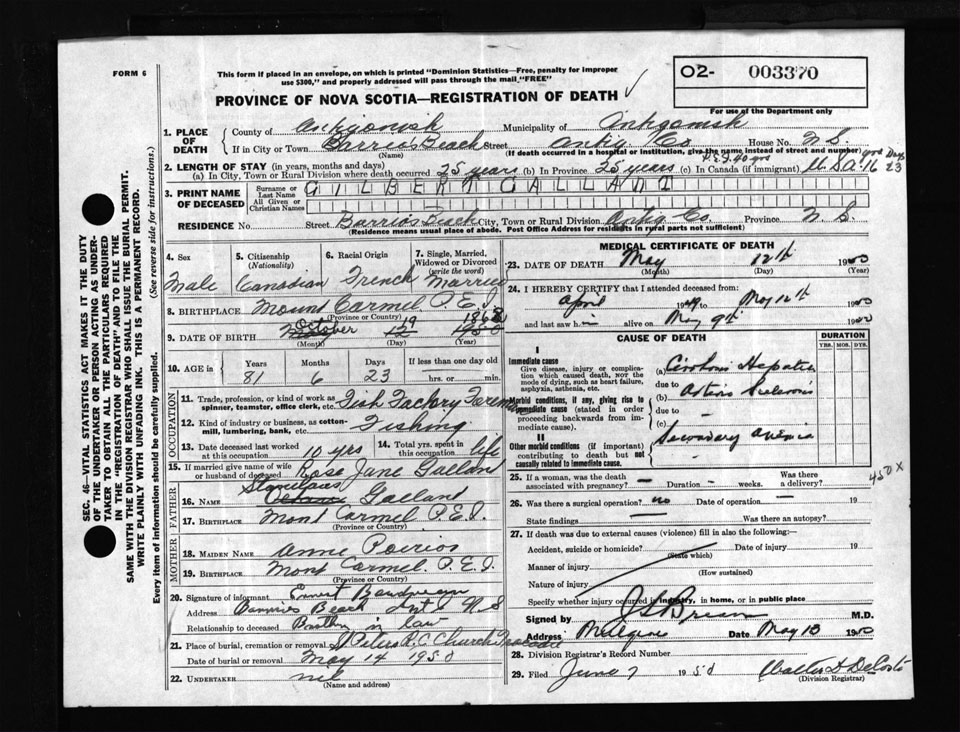 FORM 6
This form if placed in an envelope, on which is printed "Dominion Statistics—Free, penalty for improper
use $300," and properly addressed will pass through the mail "FREE"
O2- 003370
For use of the Department only
PROVINCE OF NOVA SCOTIA—REGISTRATION OF DEATH
1. PLACE OF DEATH
County of Antigonish Municipality of Antigonish
If in City or Town Barrios Beach Street Antig Co House No. N S.
(Name) (If death occurred in a hospital or institution, give the name instead of street and number)
P.E.I. 40 yrs
2. LENGTH OF STAY (in years, months and days)
(a) In City, Town or Rural Division where death occurred 25 years (b) In Province 25 years (c) In Canada (if immigrant) U.S.A. 16 23
3. PRINT NAME OF DECEASED
Surname or Last Name GILBERT GALLANT
All Given or Christian Names
RESIDENCE No. Street Barrios Beach City, Town or Rural Division Antig Co. Province N S.
(Residence means usual place of abode. Post Office Address for residents in rural parts not sufficient)
4. Sex Male
5. Citizenship (Nationality) Canadian
6. Racial Origin French
7. Single, Married, Widowed or Divorced (write the word) Married
8. BIRTHPLACE Mount Carmel P.E.I.
(Province or Country)
9. DATE OF BIRTH October 19 1868 1950
(Month) (Day) (Year)
10. AGE in Years 81 Months 6 Days 23 If less than one day old
hrs. or min.
OCCUPATION
11. Trade, profession, or kind of work as spinner, teamster, office clerk, etc. Fish Factory Foreman
12. Kind of industry or business, as cotton-mill, lumbering, bank, etc. Fishing
13. Date deceased last worked at this occupation 10 yrs
14. Total yrs. spent in this occupation life
15. If married give name of wife or husband of deceased Rose Jane Galland
FATHER
Stanislaus
16. NAME Galland
17. BIRTHPLACE Mont Carmel P.E.I.
(Province or Country)
MOTHER
18. MAIDEN NAME Anne Poirios
19. BIRTHPLACE Mont Carmel. P.E.I.
(Province or Country)
20. Signature of informant Ernest
Address Barrios Beach Ant. N S
Relationship to deceased in law
21. Place of burial, cremation or removal St Peters R.C Church Tracadie
Date of burial or removal May 14 1950
22. UNDERTAKER nil
(Name and address)
MEDICAL CERTIFICATE OF DEATH
23. DATE OF DEATH May 12th 1950
(Month) (Day) (Year)
24. I HEREBY CERTIFY that I attended deceased from:
April 1949 to May 12th 1950
and last saw him alive on May 9th 1950
CAUSE OF DEATH
DURATION
YRS. MOS. DYS.
I
Immediate cause
Give disease, injury or complication which caused death, not the mode of dying, such as heart failure, asphyxia, asthenia, etc.
(a) Cirrhosis Hepatic
due to
Morbid conditions, if any, giving rise to immediate cause (stated in order proceeding backwards from immediate cause).
(b) Arterio Sclerosis
due to -
(c)
II
Other morbid conditions (if important) contributing to death but not causally related to immediate cause.
Secondary anemia
-
25. If a woman, was the death associated with pregnancy? — Duration — weeks. Was there a delivery?
450 X
26. Was there a surgical operation? no Date of operation — 19
State findings — Was there an autopsy?
27. If death was due to external causes (violence) fill in also the following:
Accident, suicide or homicide? Date of injury 19
(State which)
Manner of injury
(How sustained)
Nature of injury
Specify whether injury occurred in industry, in home, or in public place
Signed by M.D.
Address Date May 13 1950
28. Division Registrar's Record Number
29. Filed June 7 1950 Walter D DeCoste
(Division Registrar)
SEC. 46—VITAL STATISTICS ACT MAKES IT THE DUTY
OF THE UNDERTAKER OR PERSON ACTING AS UNDER-
TAKER TO OBTAIN ALL THE PARTICULARS REQUIRED
IN THE "REGISTRATION OF DEATH" AND TO FILE THE
SAME WITH THE DIVISION REGISTRAR WHO SHALL ISSUE THE BURIAL PERMIT.
WRITE PLAINLY WITH UNFADING INK. THIS IS A PERMANENT RECORD.
Every item of information should be carefully supplied. (See reverse side for instructions.)